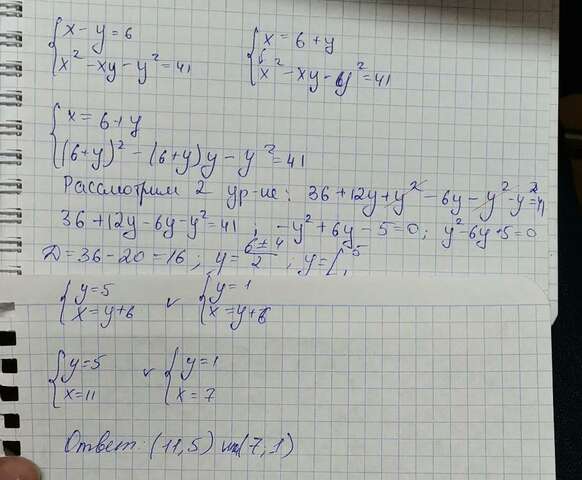 { x - y = 6        { x = 6 + y
{ x² - xy - y² = 41        { x² - xy - y² = 41
{ x = 6 + y
{ (6+y)² - (6+y)y - y² = 41
Рассмотрим 2 ур-ие: 36 + 12y + y² - 6y - y² - y² = 41
36 + 12y - 6y - y² = 41 ; -y² + 6y - 5 = 0; y² - 6y + 5 = 0
D = 36 - 20 = 16 ; y = (6 ± 4)/2 ; y = [5 1
{ y = 5        v        { y = 1
{ x = y + 6        { x = y + 6
{ y = 5        v        { y = 1
{ x = 11        { x = 7
Ответ: (11, 5) или (7, 1)